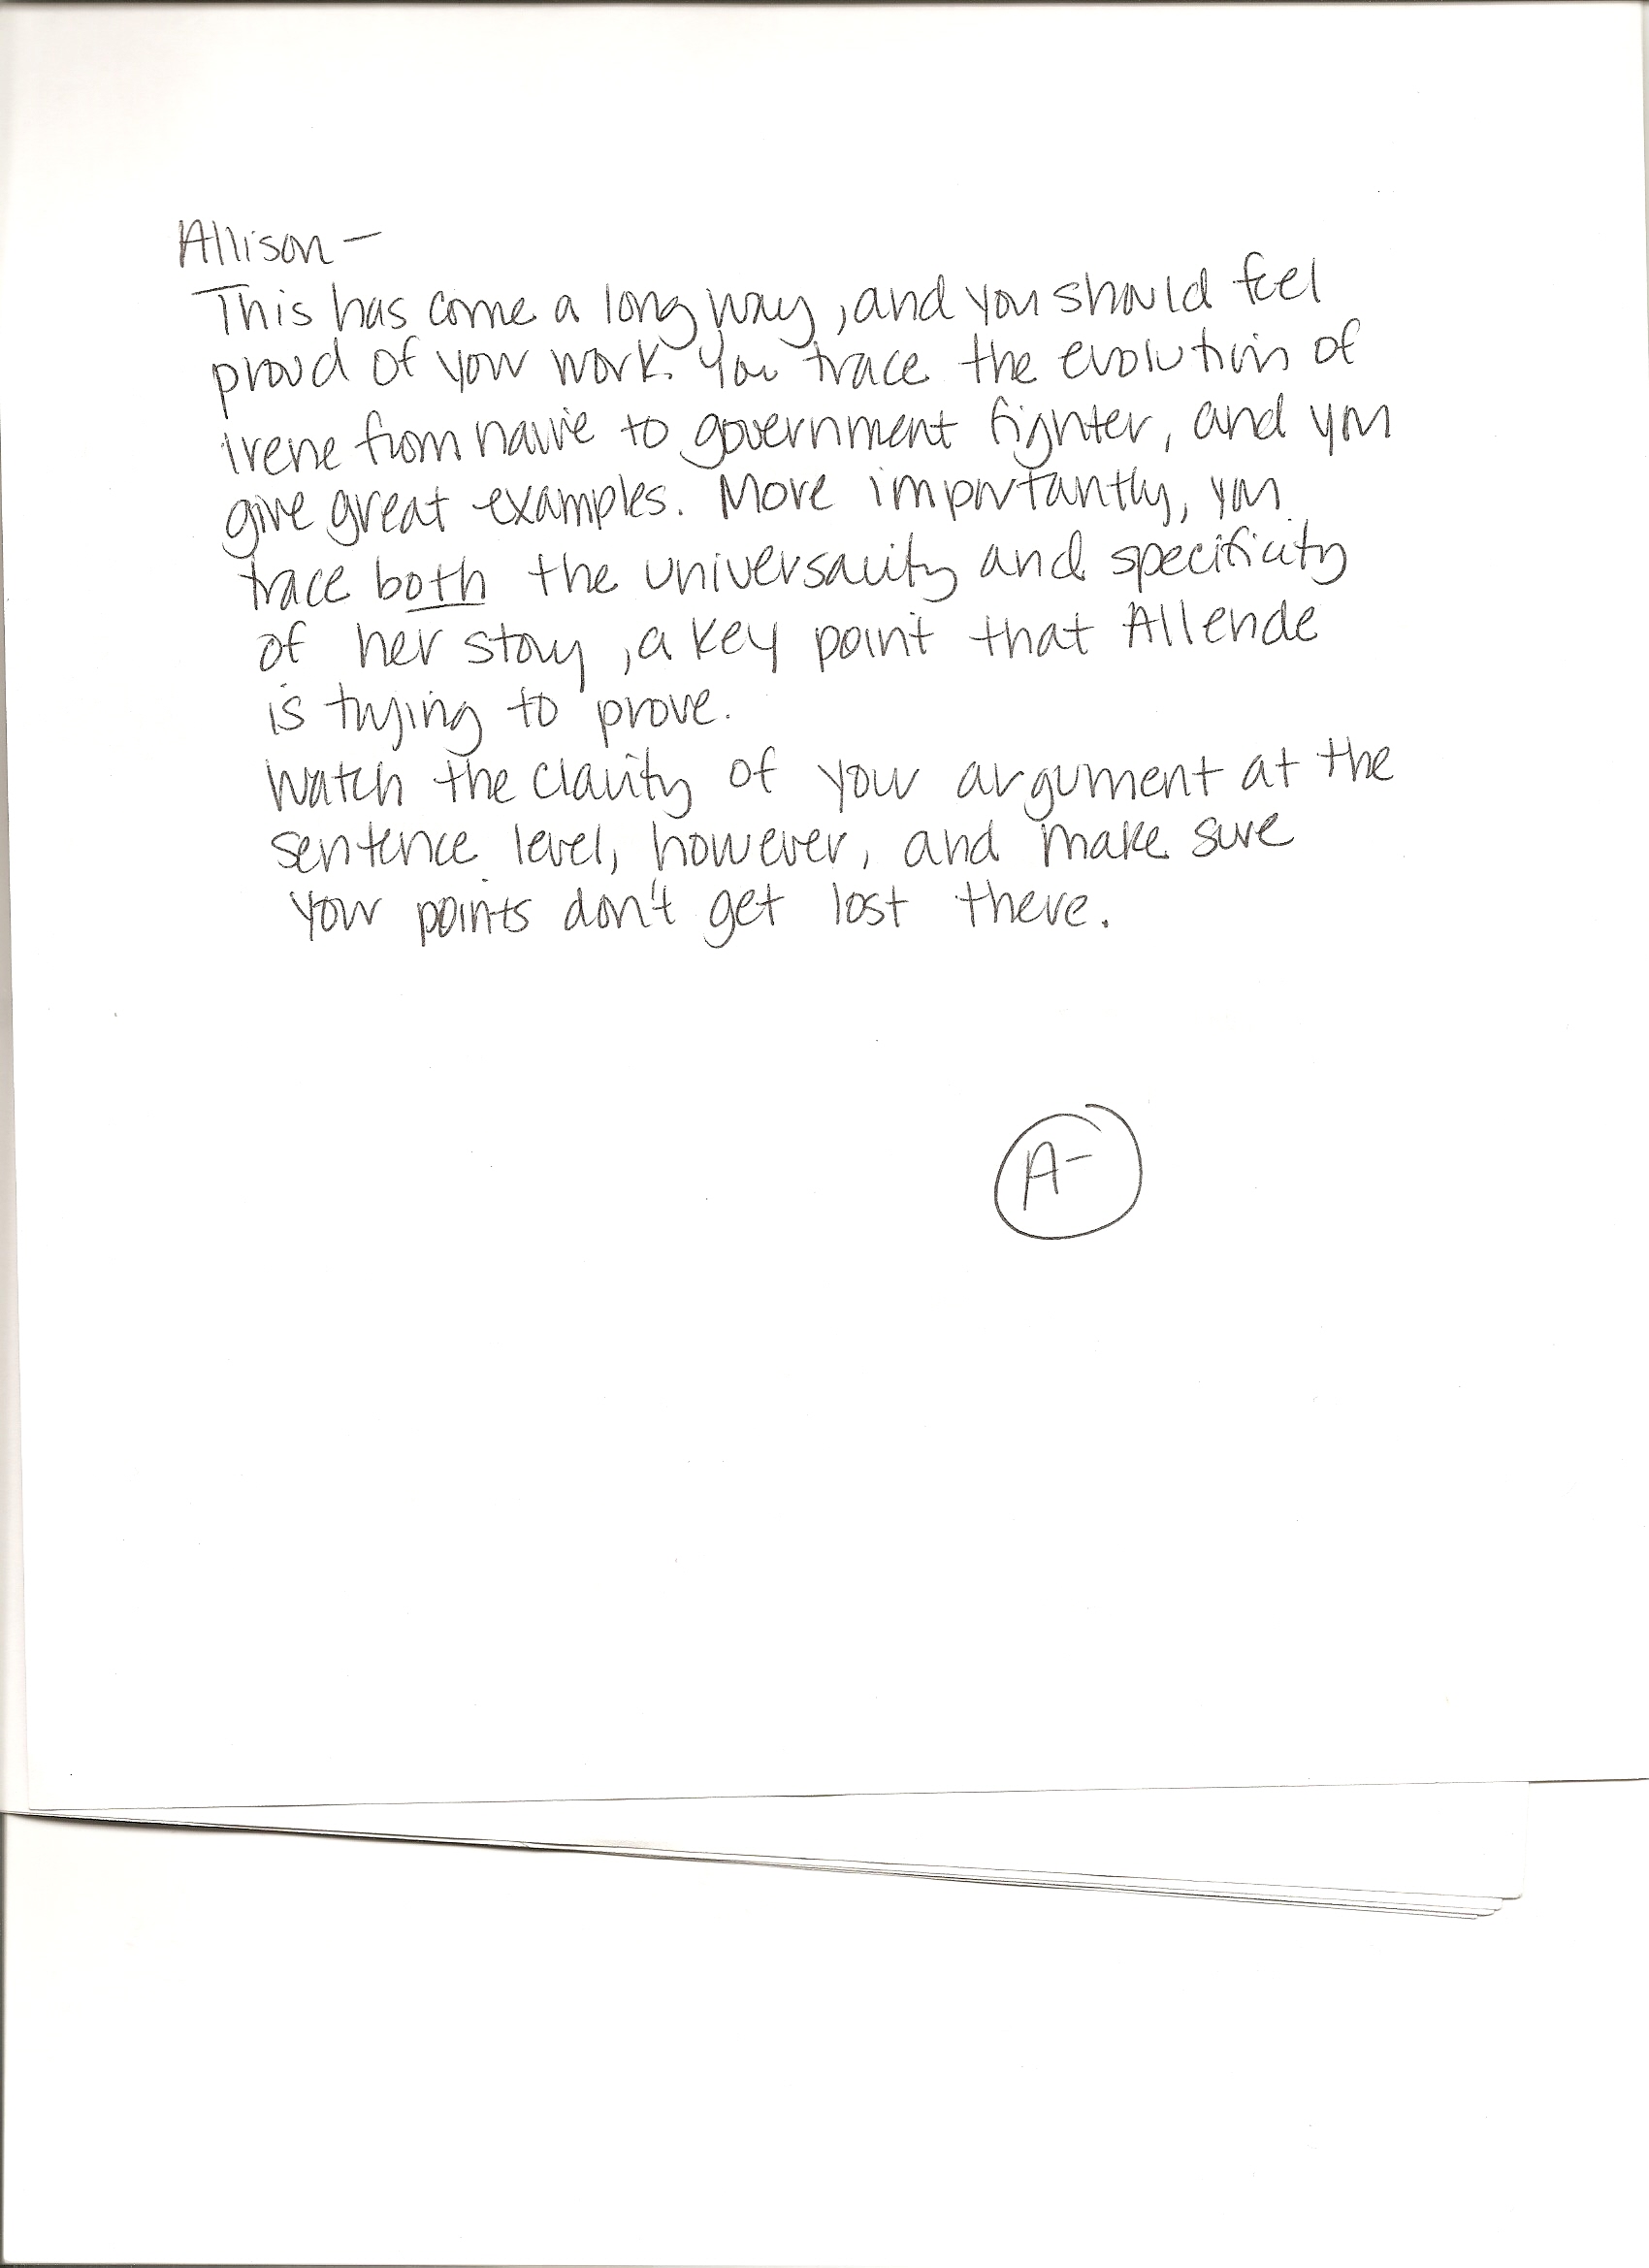 Allison —
This has come a long way, and you should feel
proud of your work. You trace the evolution of
Irene from naive to government fighter, and you
give great examples. More importantly, you
trace both the universality and specificity
of her story, a key point that Allende
is trying to prove.
Watch the clarity of your argument at the
sentence level, however, and make sure
your points don't get lost there.
A-